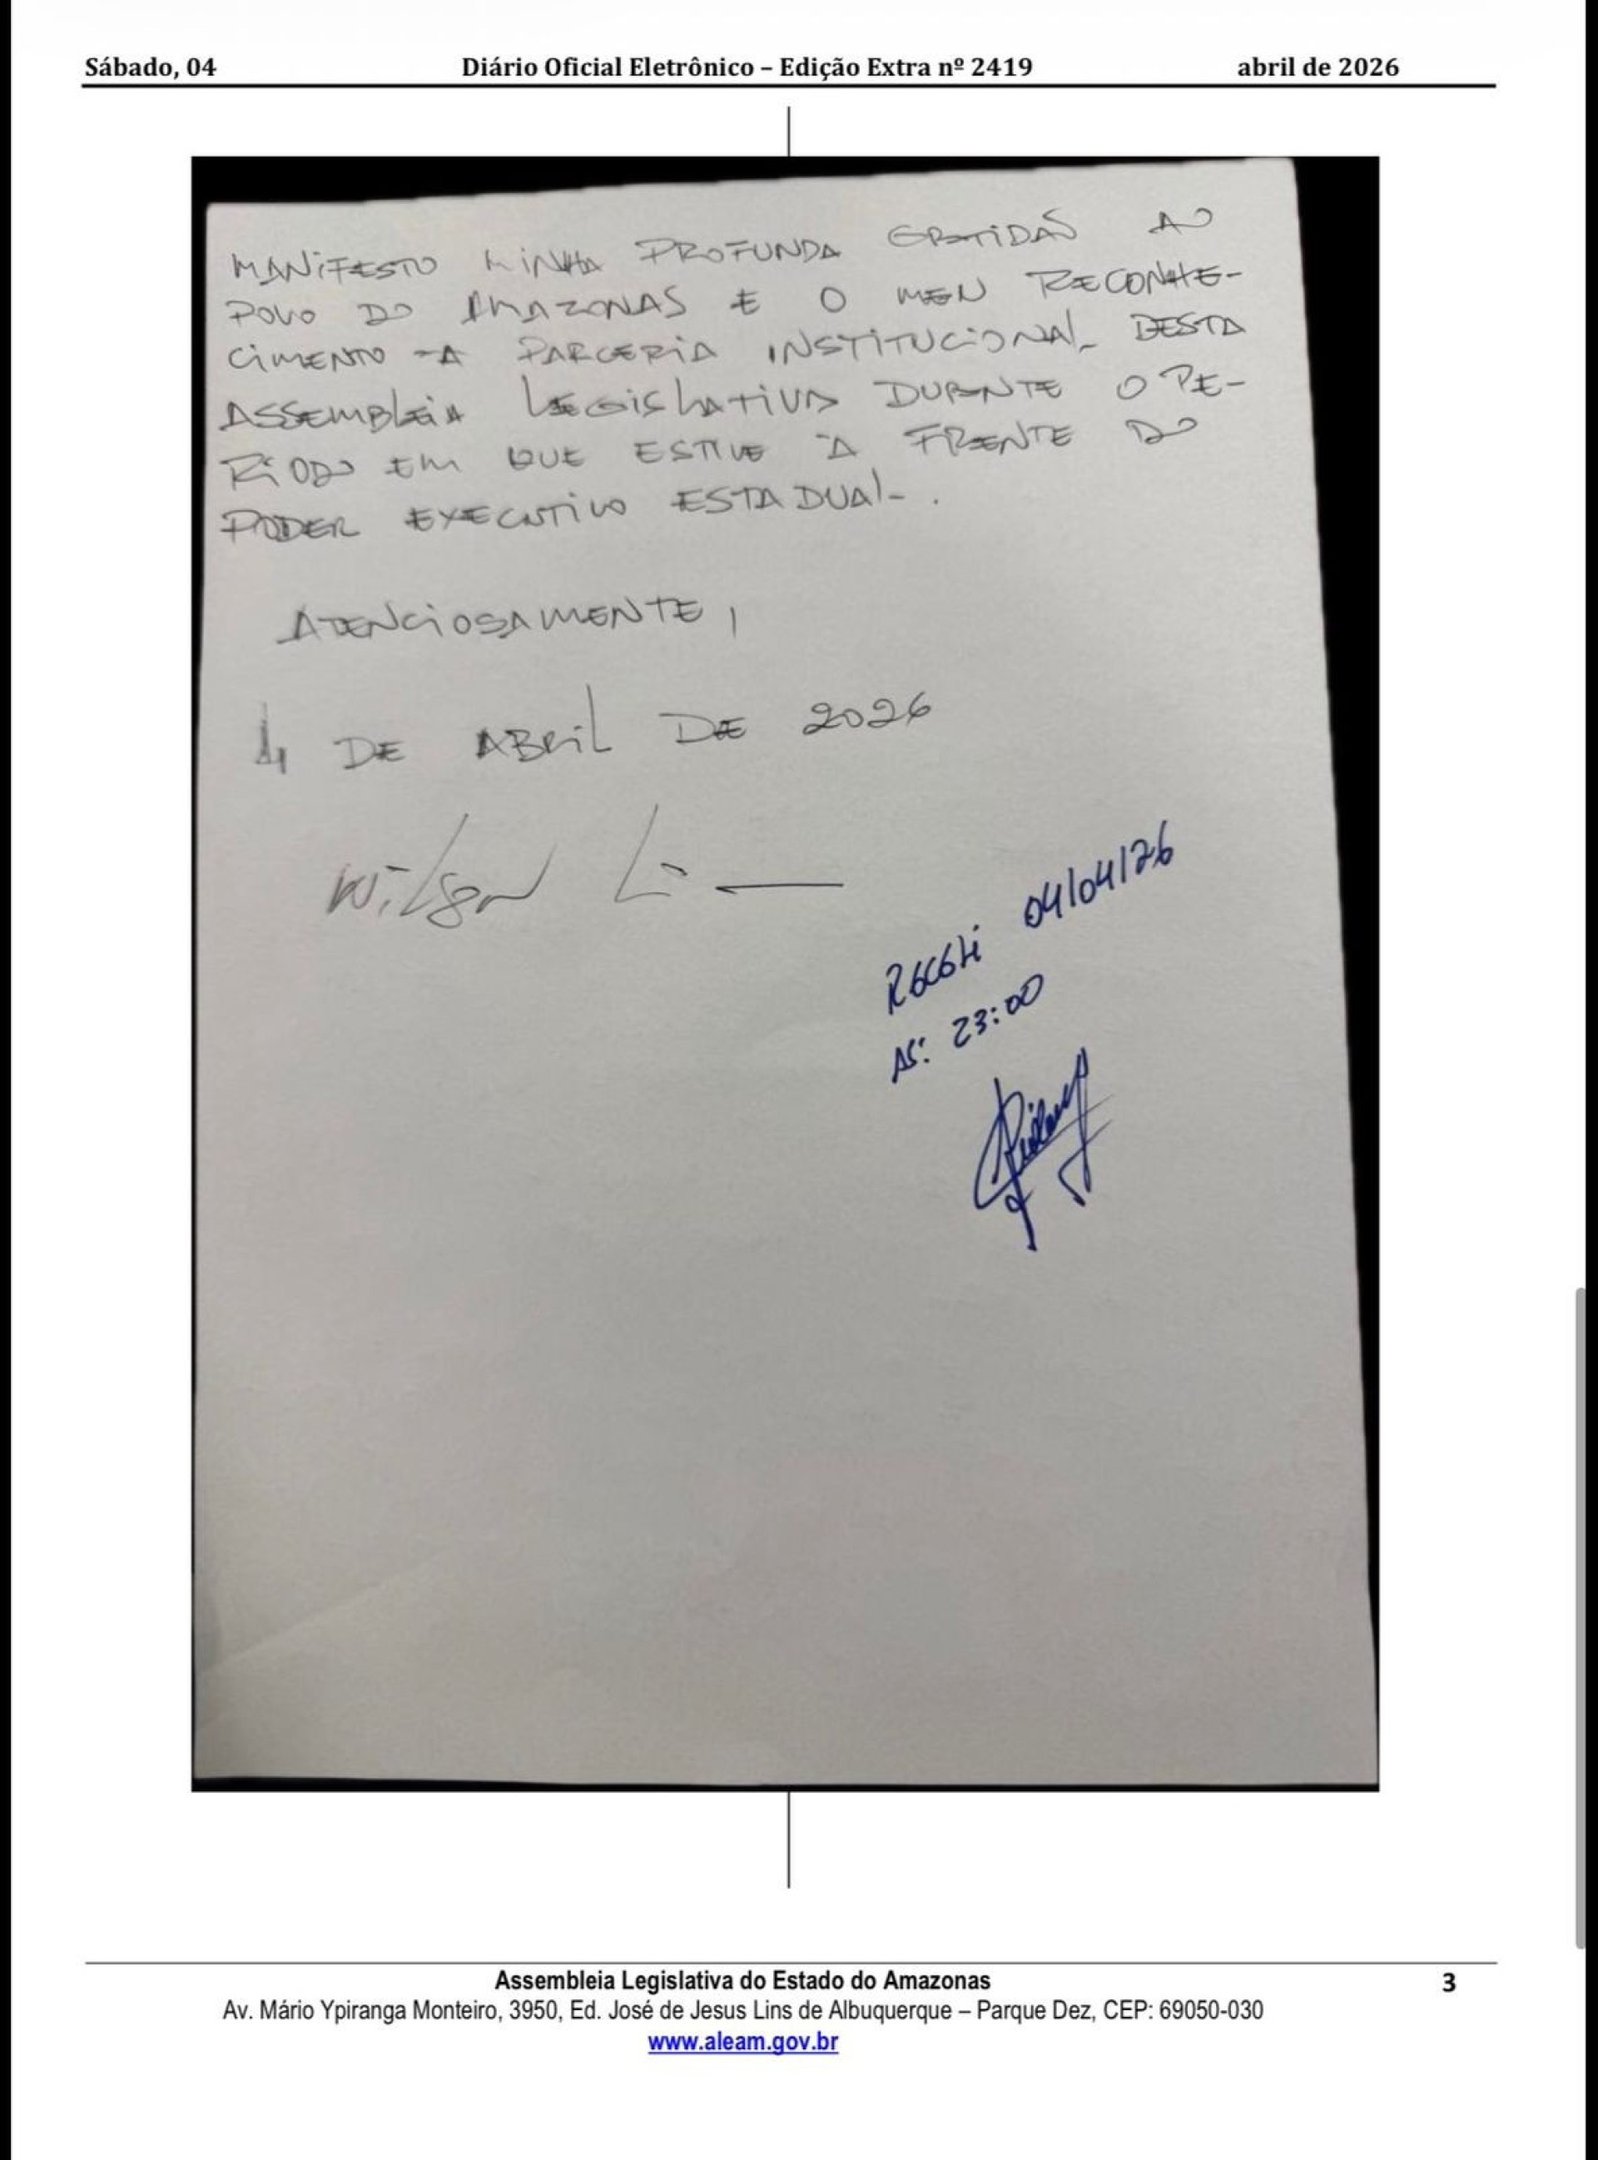 Sábado, 04 Diário Oficial Eletrônico – Edição Extra nº 2419 abril de 2026
MANIFESTO MINHA PROFUNDA GRATIDÃO AO
POVO DO AMAZONAS E O MEU RECONHE-
CIMENTO À PARCERIA INSTITUCIONAL DESTA
ASSEMBLEIA LEGISLATIVA DURANTE O PE-
RÍODO EM QUE ESTIVE À FRENTE DO
PODER EXECUTIVO ESTADUAL.
ATENCIOSAMENTE,
4 DE ABRIL DE 2026
Wilson Li
Recebi 04/04/26
AS: 23:00
Assembleia Legislativa do Estado do Amazonas 3
Av. Mário Ypiranga Monteiro, 3950, Ed. José de Jesus Lins de Albuquerque – Parque Dez, CEP: 69050-030
www.aleam.gov.br